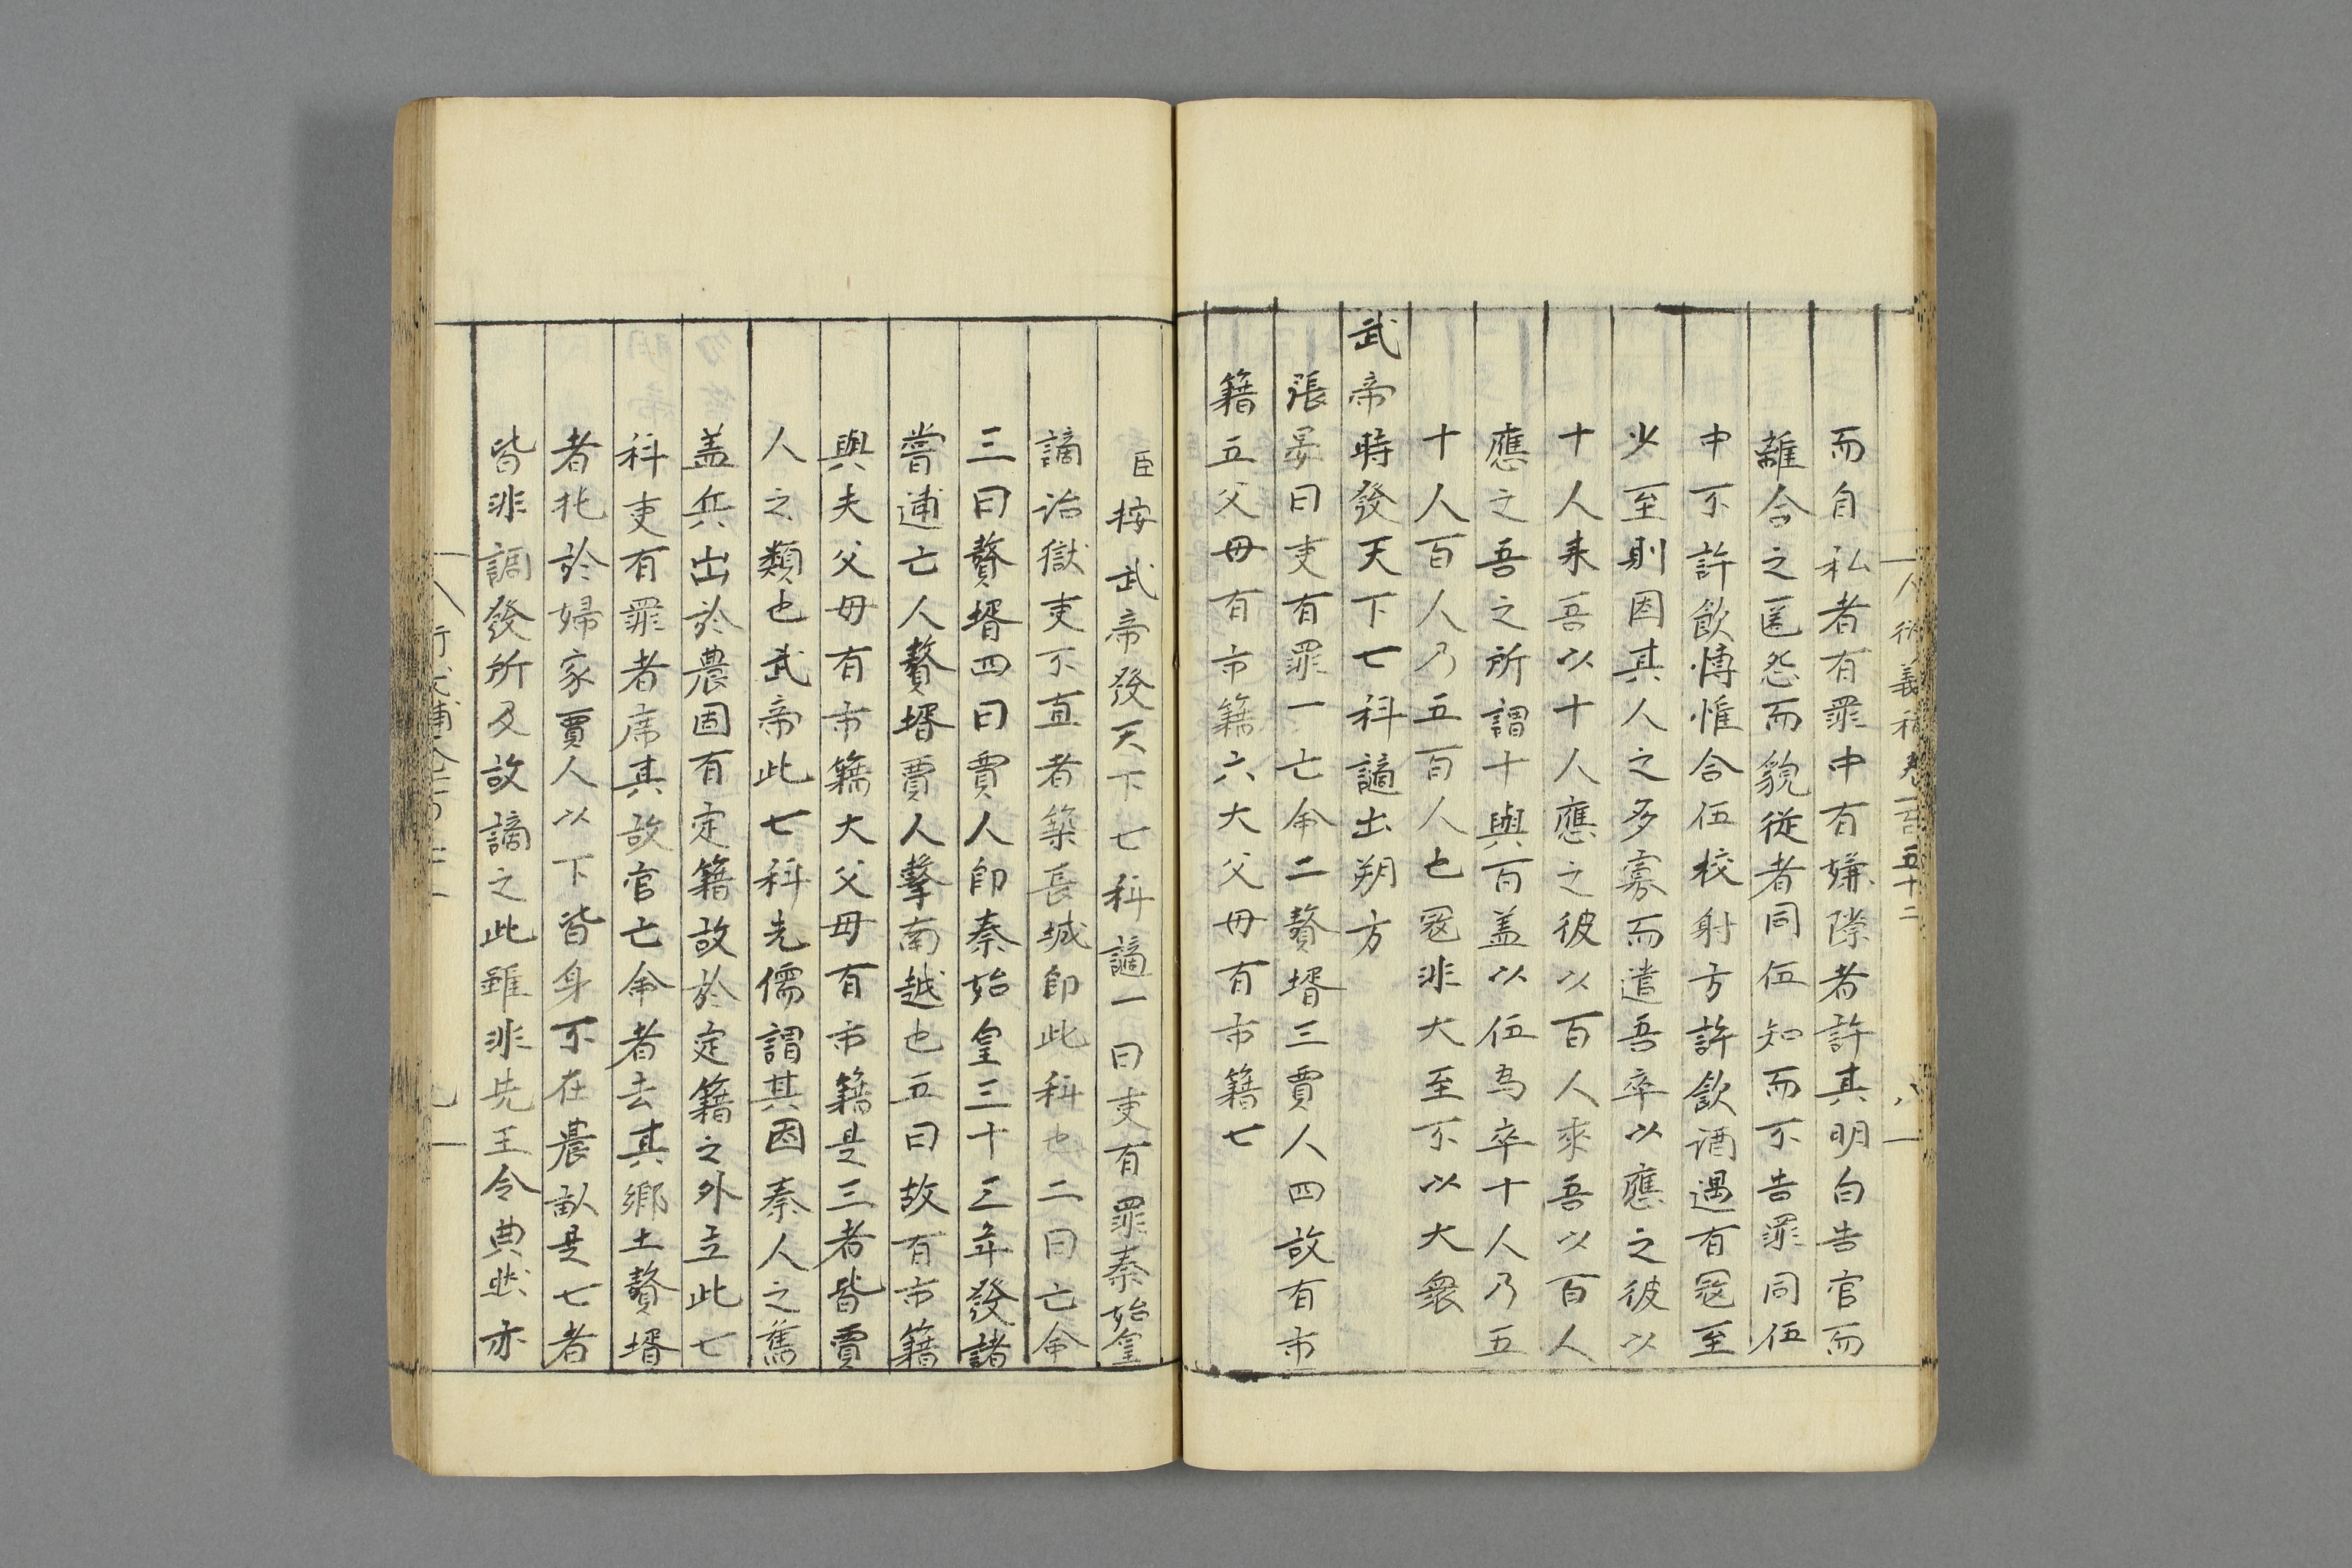 而自私者有罪中有嫌隙者許其明白告官而
離合之匿怨而貌從者同伍知而不告罪同伍
中不許飲愽惟合伍校射方許飲酒遇有寇至
少至則因其人之多寡而遣吾卒以應之彼以
十人来吾以十人應之彼以百人來吾以百人
應之吾之所謂十與百盖以伍為卒十人乃五
十人百人乃五百人也寇非大至不以大衆
武帝時發天下七科讁出朔方
張晏曰吏有罪一亡命二贅壻三賈人四故有市
籍五父母有市籍六大父母有市籍七
臣按武帝發天下七科讁一曰吏有罪秦始皇
謫治獄吏不直者築長城即此科也二曰亡命
三曰贅壻四曰賈人即秦始皇三十三年發諸
嘗逋亡人贅壻賈人擊南越也五曰故有市籍
與夫父母有市籍大父母有市籍是三者皆賈
人之類也武帝此七科先儒謂其因秦人之舊
盖兵出於農固有定籍故於定籍之外立此七
科吏有罪者席其故官亡命者去其鄉土贅壻
者托於婦家賈人以下皆身不在農畝是七者
皆非調發所及故謫之此雖非先王令典然亦
衍義補卷一百五十二
八